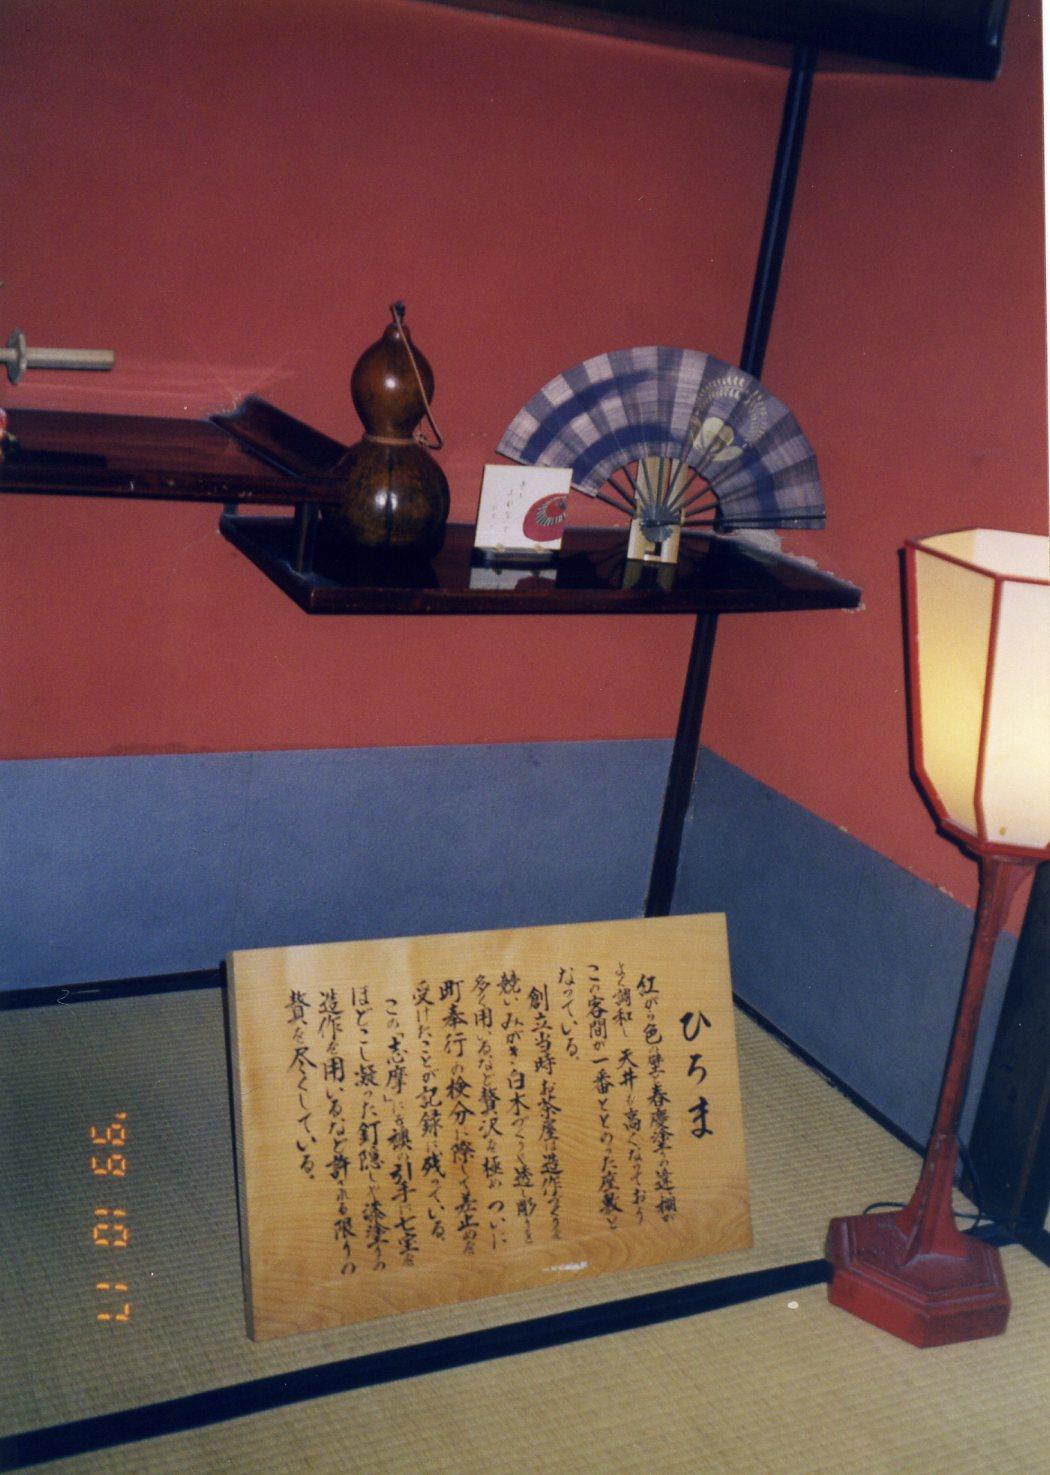 ひろま
紅がら色の壁が春慶塗りの違棚が
よく調和し天井も高くなっており
この客間が一番ととのった座敷と
なっている。
創立当時お茶屋は造作づくりを
競いみがき白木づくりや透し彫りを
多く用いるなど贅沢を極め ついに
町奉行の検分に際して差止めを
受けたことが記録に残っている。
この「志摩」にも襖の引手に七宝を
ほどこし凝った釘隠しや漆塗りの
造作を用いるなど許される限りの
贅を尽くしている。
'99 10 17